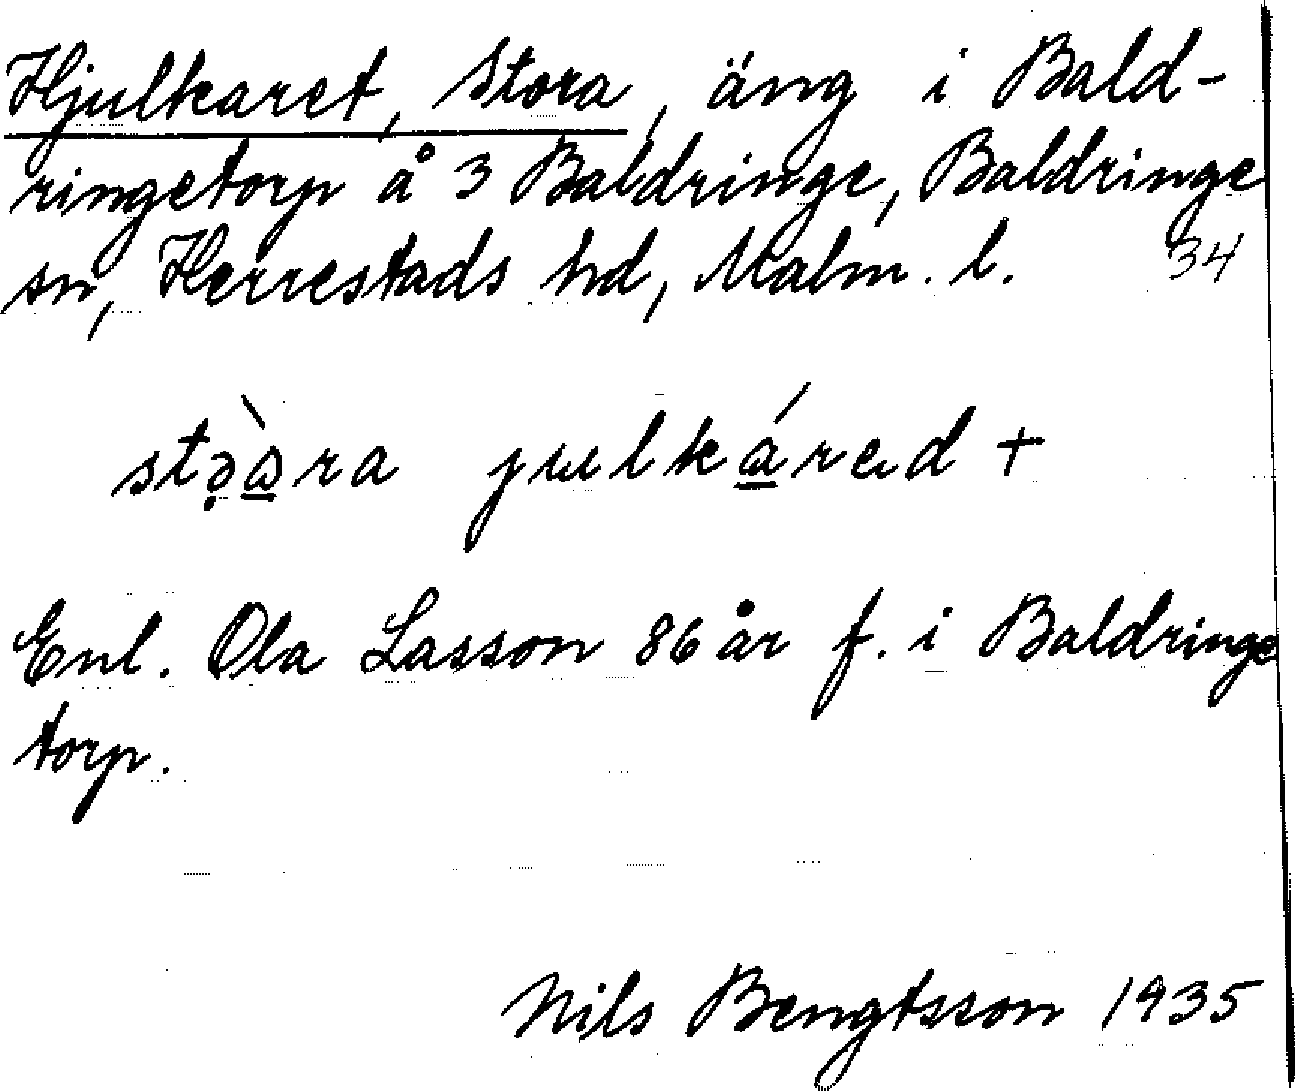 Hjulkaret, Stora, äng i Bald-
ringetorp å 3 Baldringe, Baldringe
sn, Herrestads hd, Malm. l. 34
stə̣à̱ra julká̱red +
Enl. Ola Lasson 86 år f. i Baldringe
torp.
Nils Bengtsson 1935